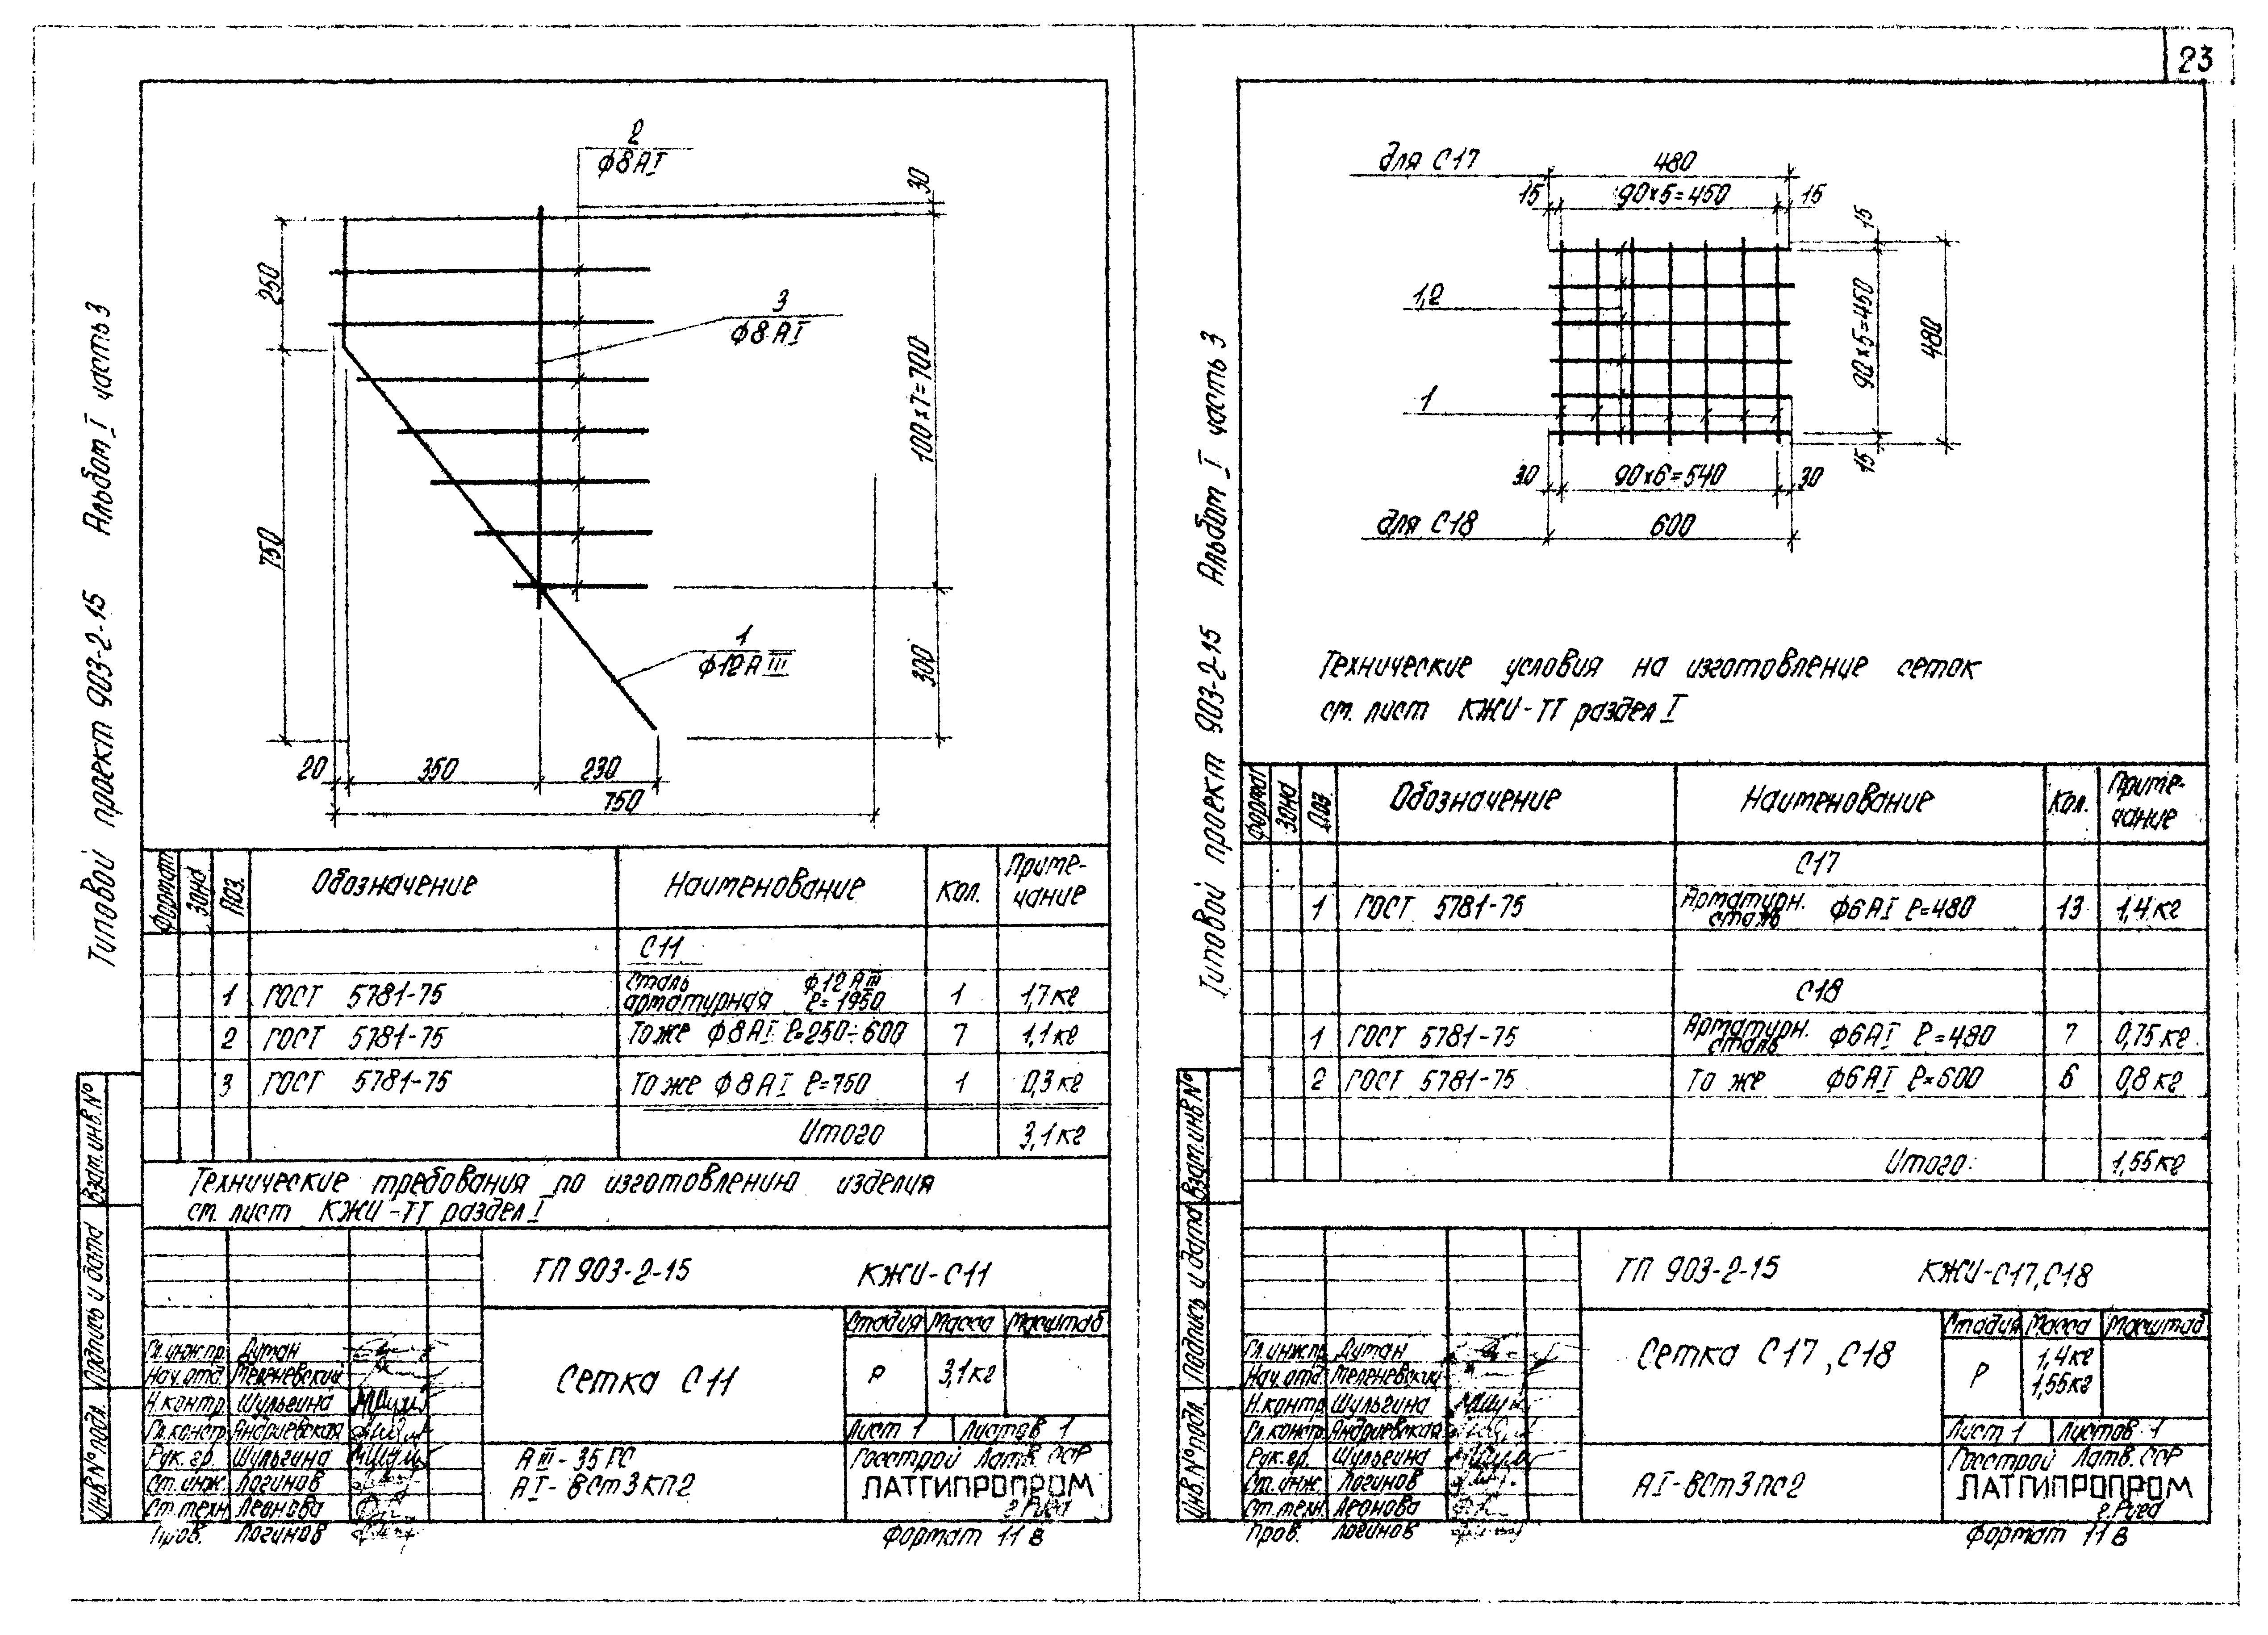 23
Типовой проект 903-2-15 Альбом I часть 3
2
ф8АI
30
250
3
ф8АI
100x7=700
750
1
ф12АIII
300
20
350
230
750
Формат
Зона
Поз.
Обозначение
Наименование
Кол.
Примечание
С11
1 ГОСТ 5781-75 Сталь арматурная ф12АIII ℓ=1950 1 1,7кг
2 ГОСТ 5781-75 То же ф8АI ℓ=250÷600 7 1,1кг
3 ГОСТ 5781-75 То же ф8АI ℓ=750 1 0,3кг
Итого 3,1кг
Технические требования по изготовлению изделия
см. лист КЖИ-ТТ раздел I
ТП 903-2-15 КЖИ-С11
Стадия Масса Масштаб
Сетка С11
Р 3,1кг
Лист 1 Листов 1
Гл.инж.пр. Думан
Нач.отд. Меленевский
Н.контр. Шульгина
Гл.констр. Андриевская
Рук. гр. Шульгина
Ст.инж. Логинов
Ст.техн. Леонова
Пров. Логинов
АIII-35ГС
АI-ВСт3кп2
Госстрой Латв.ССР
ЛАТГИПРОПРОМ
г.Рига
Формат 11в
Взам.инв.№
Подпись и дата
Инв.№подл.
Типовой проект 903-2-15 Альбом I часть 3
для С17
480
15
90x5=450
15
15
1,2
90x5=450
480
1
15
30
90x6=540
30
для С18
600
Технические условия на изготовление сеток
см. лист КЖИ-ТТ раздел I
Формат
Зона
Поз.
Обозначение
Наименование
Кол.
Примечание
С17
1 ГОСТ 5781-75 Арматурн. сталь ф6АI ℓ=480 13 1,4кг
С18
1 ГОСТ 5781-75 Арматурн. сталь ф6АI ℓ=480 7 0,75кг.
2 ГОСТ 5781-75 То же ф6АI ℓ=600 6 0,8кг
Итого: 1,55кг
ТП 903-2-15 КЖИ-С17,С18
Стадия Масса Масштаб
Сетка С17,С18
Р 1,4кг
1,55кг
Лист 1 Листов 1
Гл.инж.пр. Думан
Нач.отд. Меленевский
Н.контр. Шульгина
Гл.констр. Андриевская
Рук.гр. Шульгина
Ст.инж. Логинов
Ст.техн. Леонова
Пров. Логинов
АI-ВСт3пс2
Госстрой Латв.ССР
ЛАТГИПРОПРОМ
г.Рига
Формат 11в
Взам.инв.№
Подпись и дата
Инв.№подл.